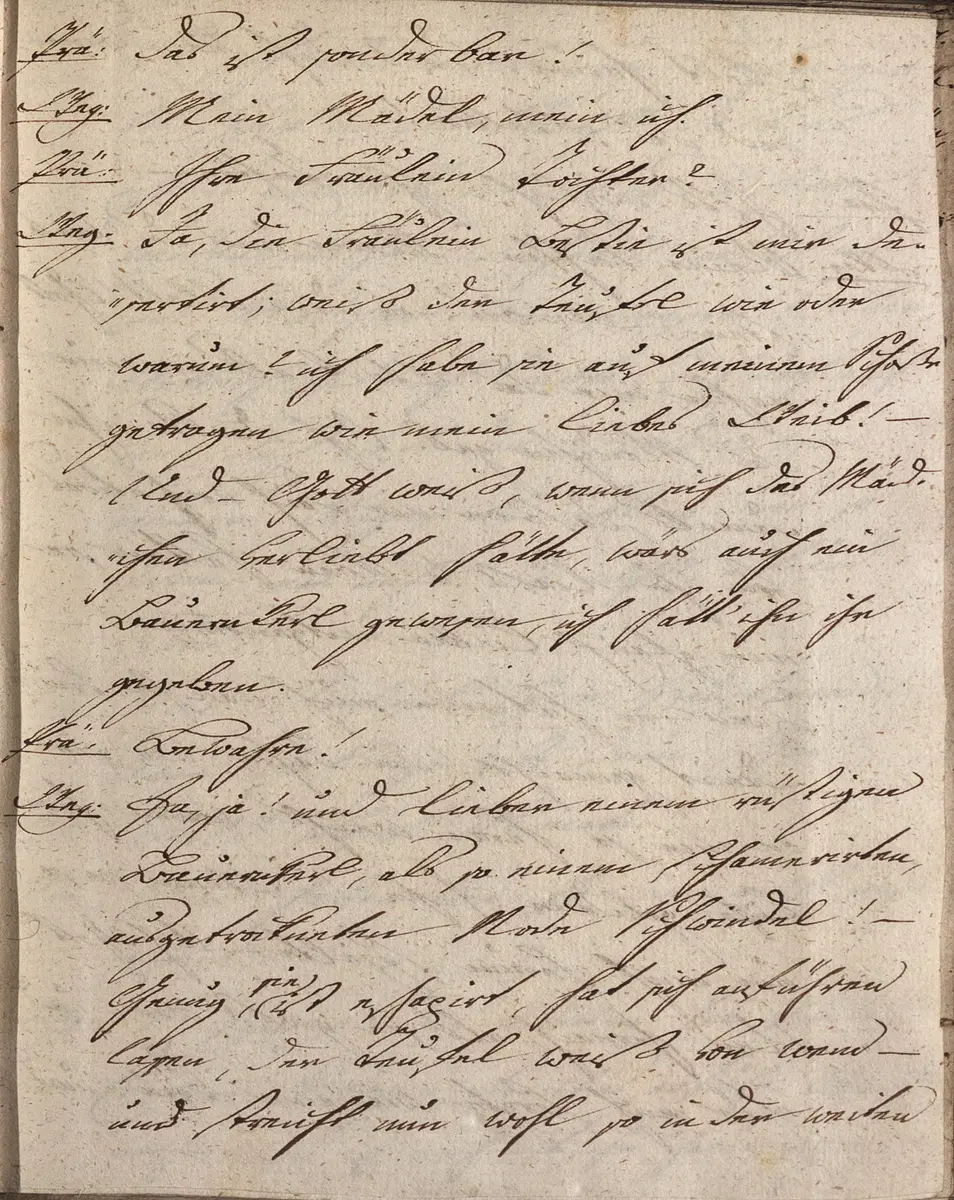 Prä: das ist sonderbar!
Weg: Mein Mädel, mein ich.
Prä: Ihre Fräulein Tochter?
Weg. Ja, die Fräulein Bestie ist mir de-
"sertirt; weiß der Teufel wie oder
warum? ich habe sie auf meinem Schoße
getragen wie mein liebes Weib! –
Und – Gott weiß, wenn sich das Mäd-
"chen verliebt hätte, wärs auch ein
Bauernkerl gewesen, ich hätt' ihn ihr
gegeben.
Prä. Bewahre!
Weg: Ja, ja! und lieber einem rüstigen
Bauernkerl, als so einem schamerirten,
ausgetrokneten Mode Schwindel! –
Genug sie ist echapirt, hat sich anführen
laßen, der Teufel weiß von wem –
und streicht nun wohl so in der weiten